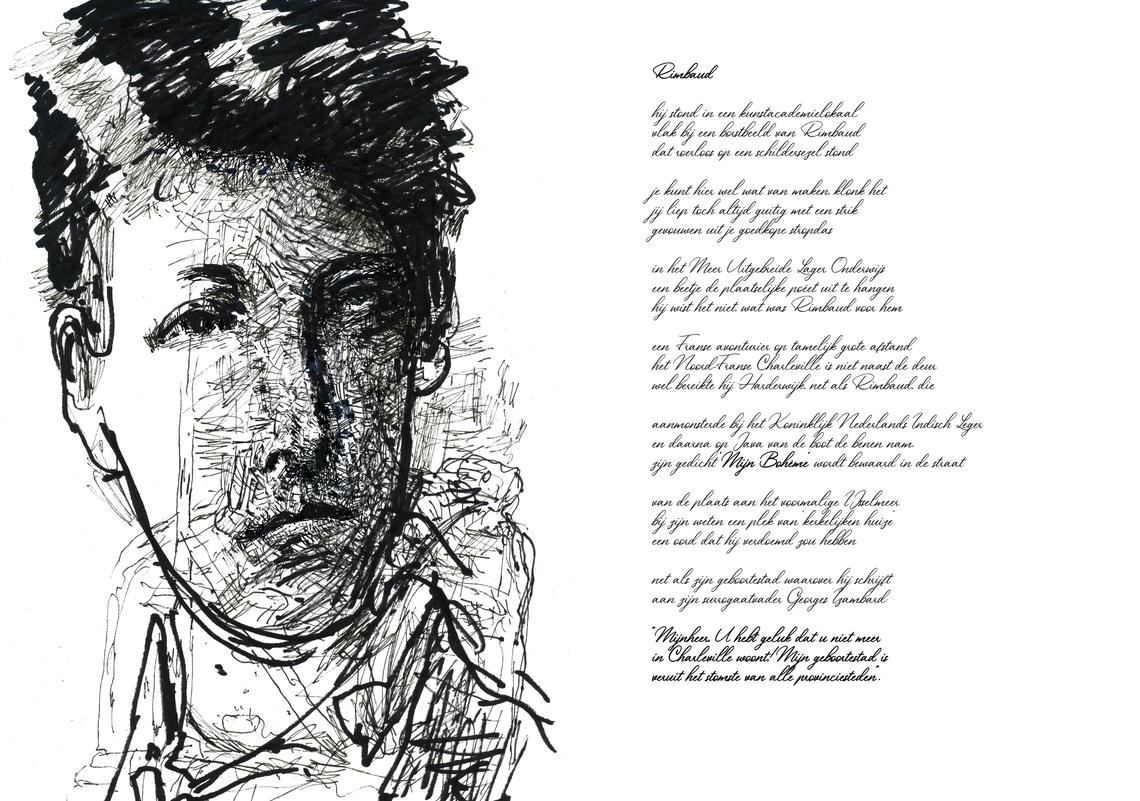 Rimbaud
hij stond in een kunstacademielokaal
vlak bij een borstbeeld van Rimbaud
dat roerloos op een schildersezel stond
je kunt hier wel wat van maken, klonk het
jij liep toch altijd guitig met een strik
gevouwen uit je goedkope stropdas
in het Meer Uitgebreide Lager Onderwijs
een beetje de plaatselijke poëet uit te hangen
hij wist het niet, wat was Rimbaud voor hem
een Franse avonturier op tamelijk grote afstand
het Noord-Franse Charleville is niet naast de deur
wel bereikte hij Harderwijk net als Rimbaud, die
aanmonsterde bij het Koninklijk Nederlands Indisch Leger
en daarna op Java van de boot de benen nam,
zijn gedicht 'Mijn Bohème' wordt bewaard in de straat
van de plaats aan het voormalige IJsselmeer
bij zijn weten een plek van 'kerkelijken huize'
een oord dat hij verdoemd zou hebben
net als zijn geboortestad waarover hij schrijft
aan zijn surrogaatvader Georges Izambard
"Mijnheer, U hebt geluk dat u niet meer
in Charleville woont! Mijn geboortestad is
veruit het stomste van alle provinciesteden".